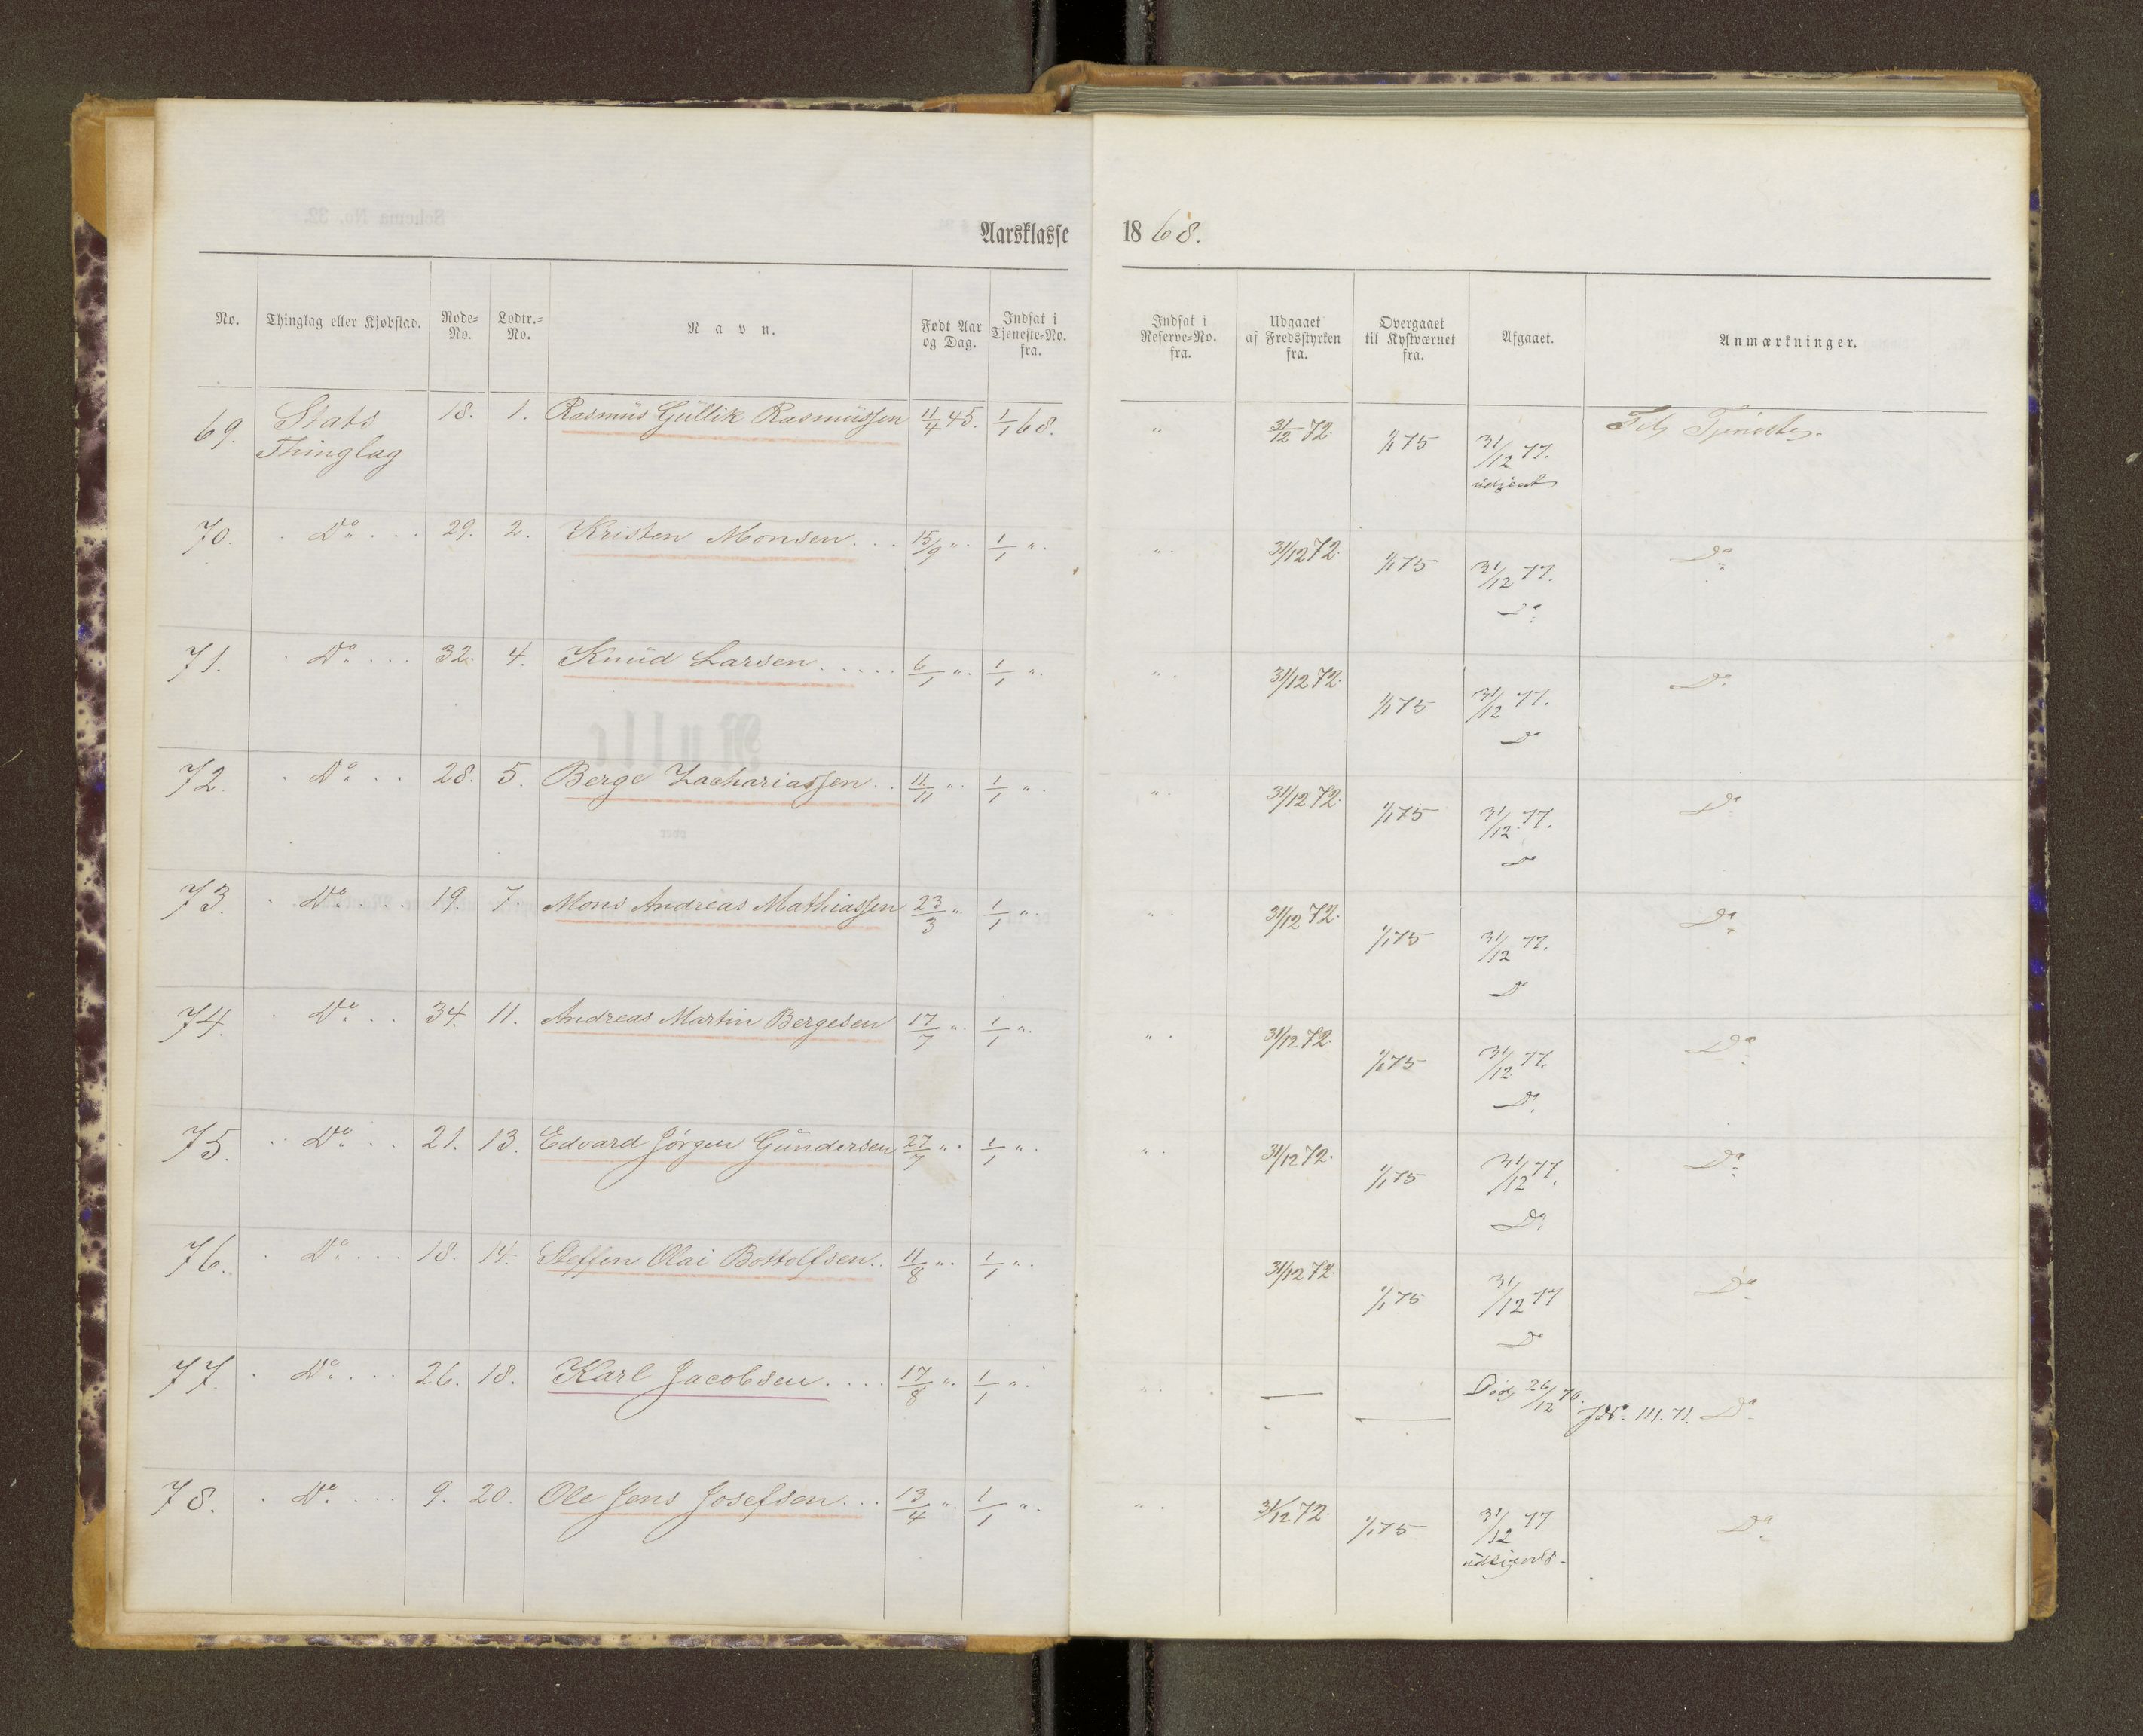 Aarsklasse 1868.
No. Thinglag eller Kjøbstad. Rode-No. Lodtr.-No. Navn. Født Aar og Dag. Indsat i Tjeneste-No. fra. Indsat i Reserve-No. fra. Udgaaet af Fredsstyrken fra. Overgaaet til Kystværnet fra. Afgaaet. Anmærkninger.
69. Stats 18. 1. Rasmus Gullik Rasmussen 11/4 45. 1/1 68. " 31/12 72. 1/1 75 31/12 77. Tjeneste.
Thinglag udtjent
70. Do 29. 2. Kristen Monsen 15/9 " 1/1 " " 31/12 72. 1/1 75 31/12 77. Do
Do
71. Do 32. 4. Knud Larsen 6/1 " 1/1 " " 31/12 72. 1/1 75 31/12 77. Do
Do
72. Do 28. 5. Berge Zachariassen 11/11 " 1/1 " " 31/12 72. 1/1 75 31/12 77. Do
Do
73. Do 19. 7. Mons Andreas Mathiassen 23/3 " 1/1 " " 31/12 72. 1/1 75 31/12 77. Do
Do
74. Do 34. 11. Andreas Martin Bergesen 17/7 " 1/1 " " 31/12 72. 1/1 75 31/12 77. Do
Do
75. Do 21. 13. Edvard Jørgen Gundersen 27/7 " 1/1 " " 31/12 72. 1/1 75 31/12 77. Do
Do
76. Do 18. 14. Steffen Olai Bottolfsen 11/8 " 1/1 " 31/12 72. 1/1 75 31/12 77 Do
Do
77. Do 26. 18. Karl Jacobsen 17/8 " 1/1 " " — — Død 26/12 70. JNo 111. 71. Do
78. Do 9. 20. Ole Jens Josefsen 13/4 " 1/1 " " 31/12 72. 1/1 75 31/12 77 Do
udtjent.